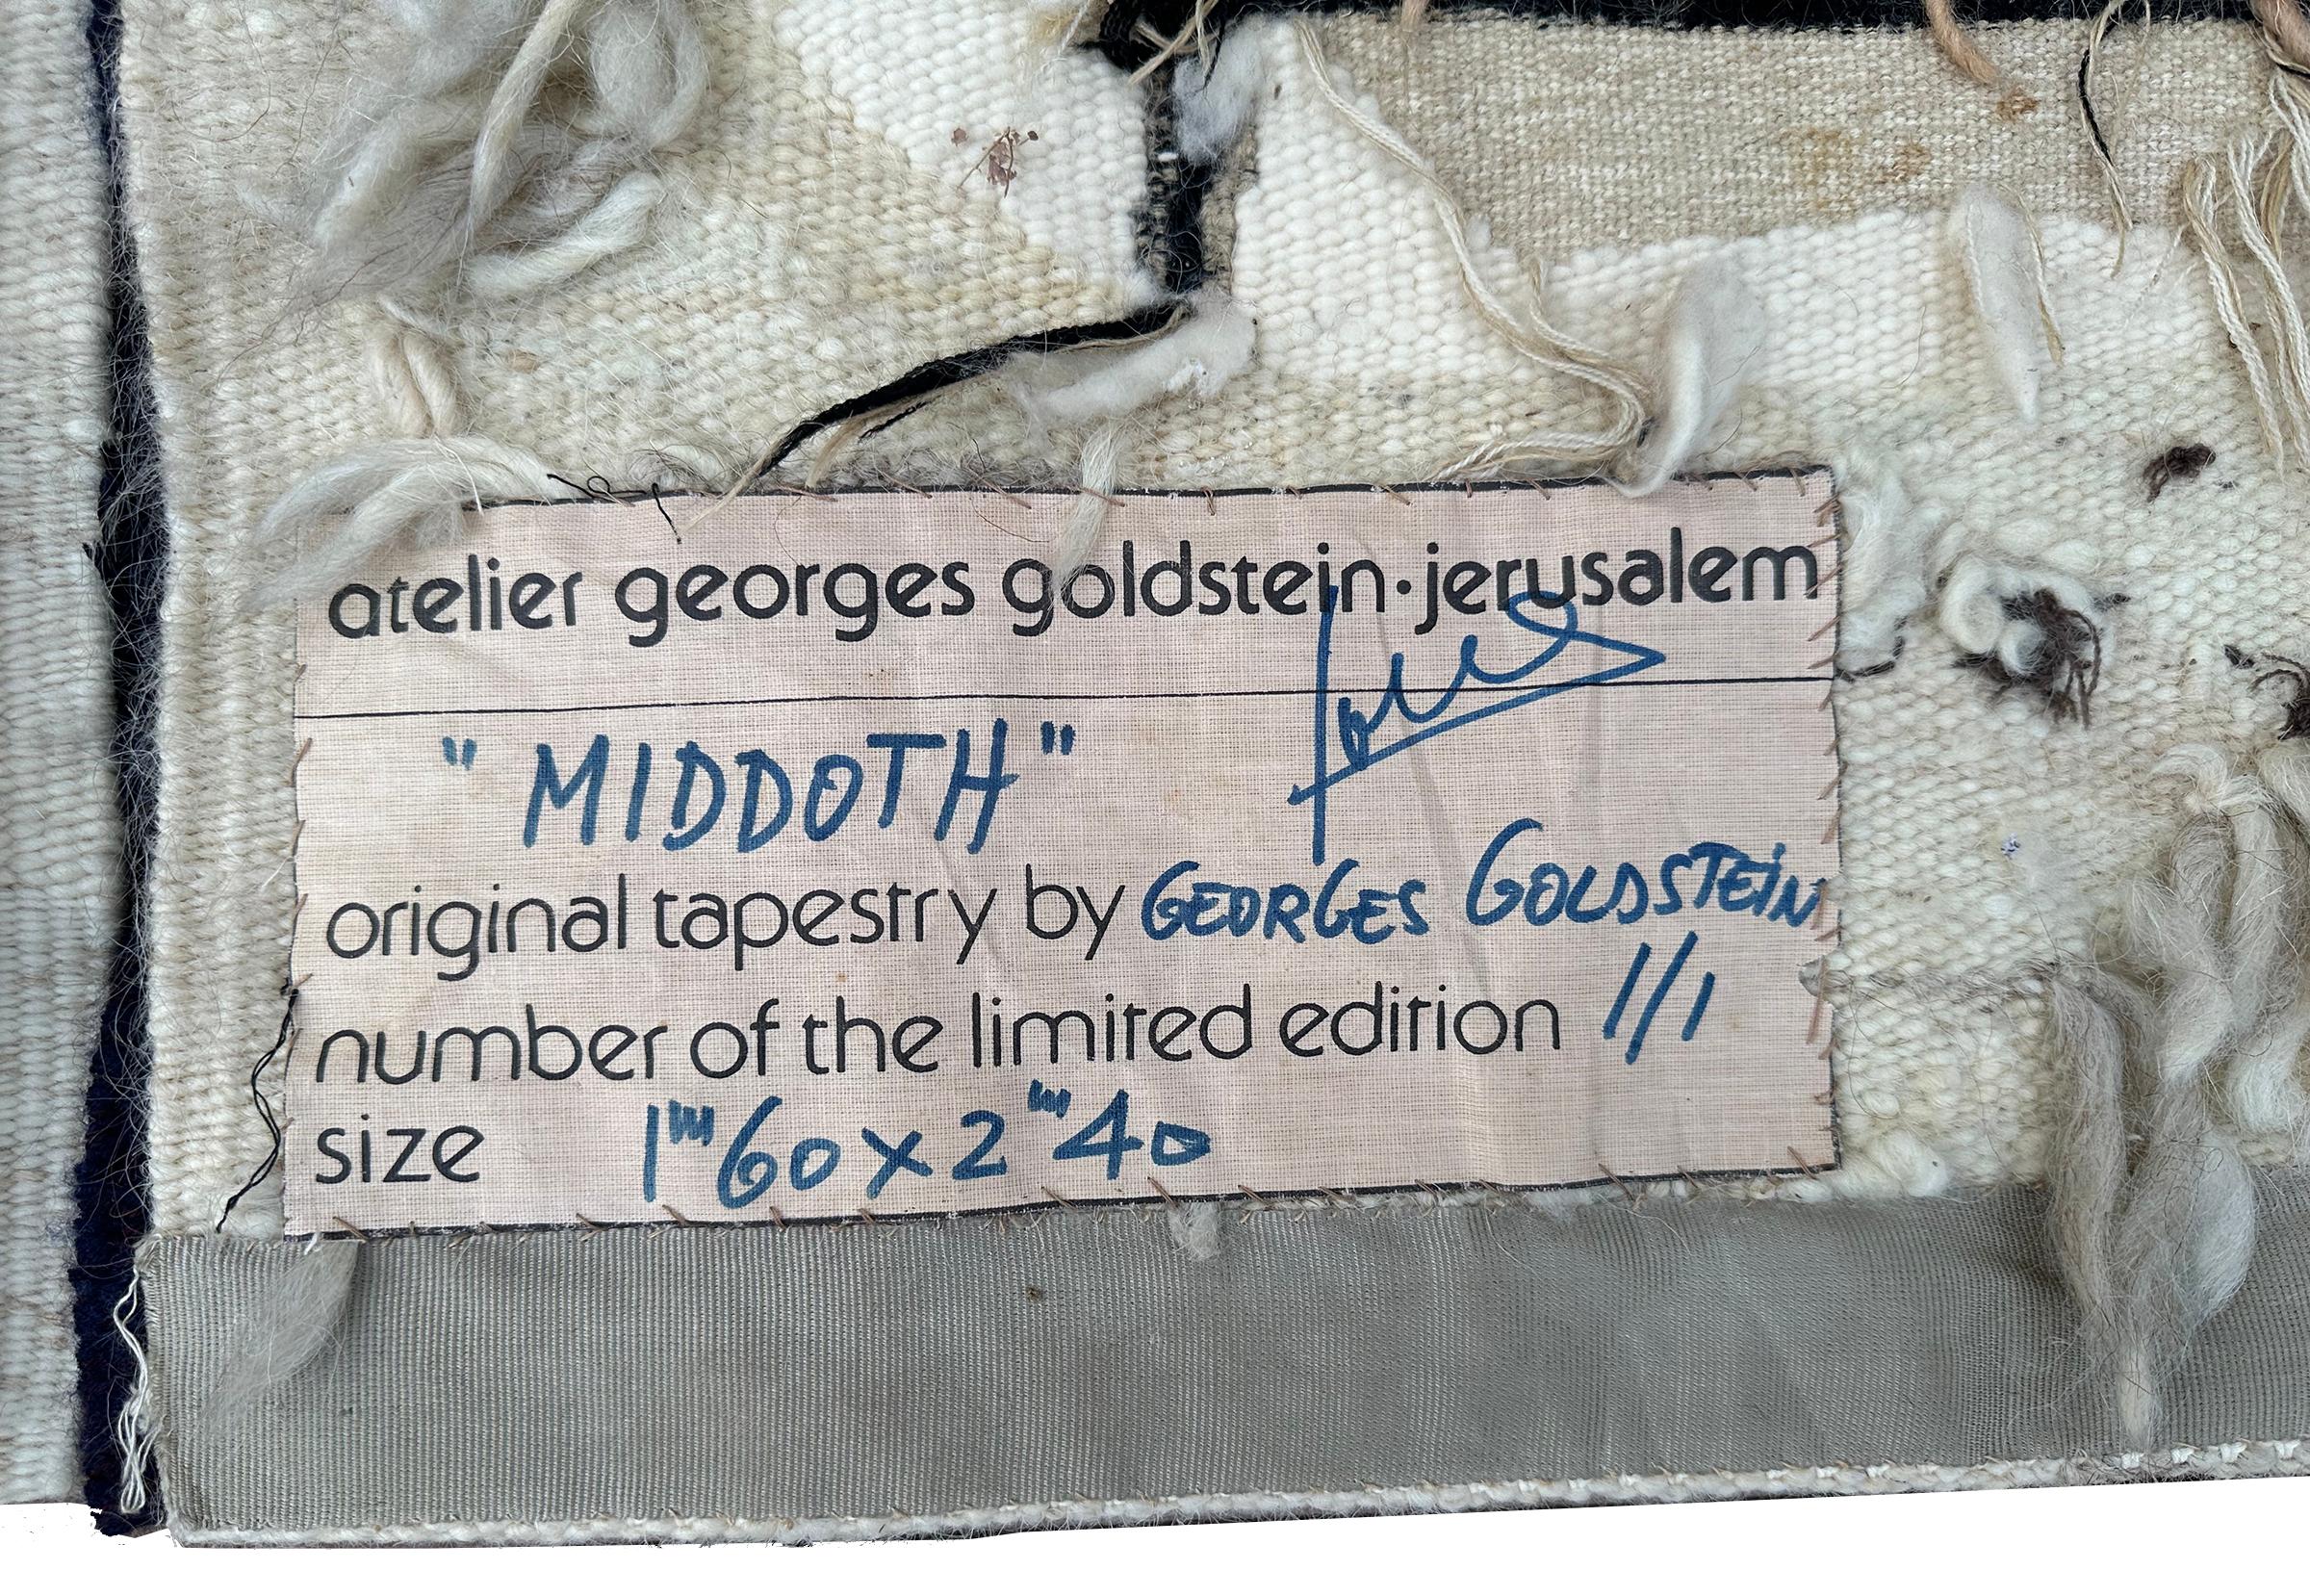 atelier georges goldstein·jerusalem
"MIDDOTH"
original tapestry by GEORGES GOLDSTEIN
number of the limited edition 1/1
size 1m60 x 2m40